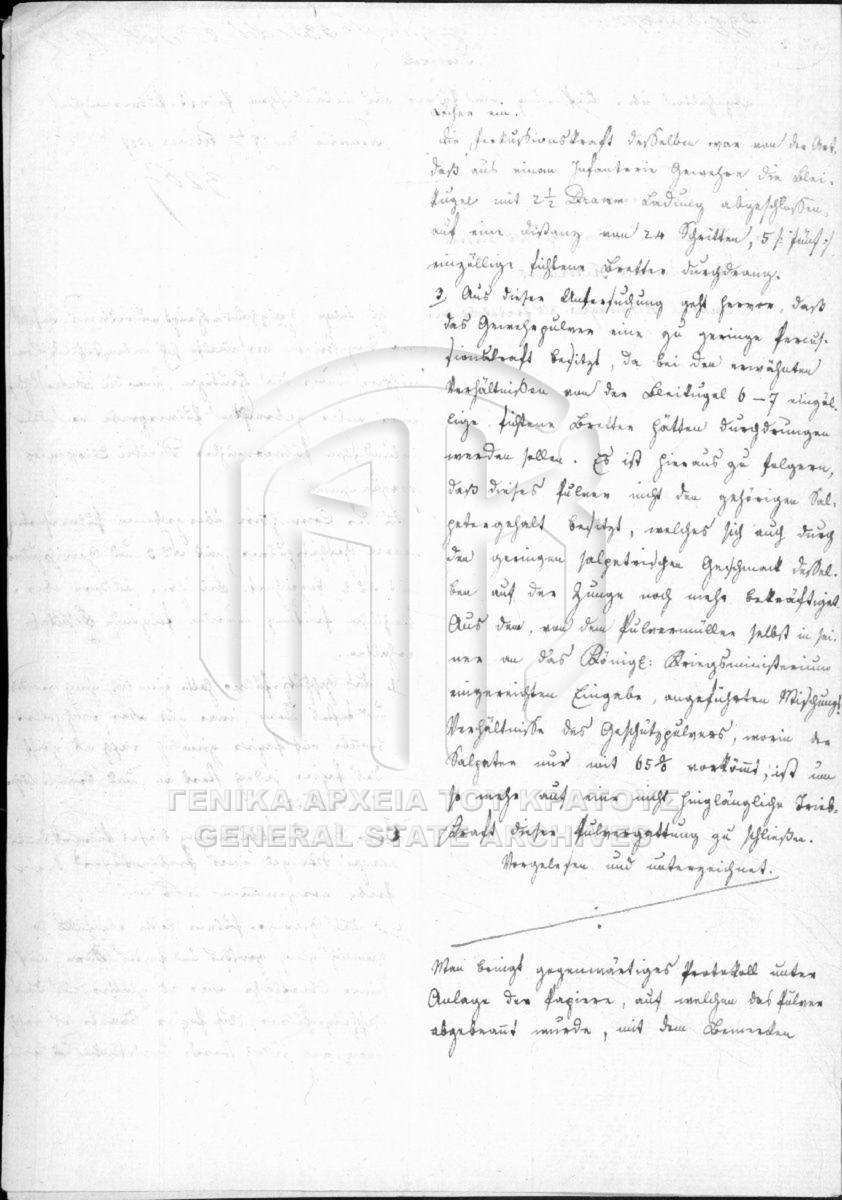 Löcher ein.
Die Perkussionskraft desselben war von der Art,
daß aus einem Infanterie Gewehre die Blei-
kugel mit 2 1/2 Dramm Ladung abgeschlossen,
auf eine Distanz von 24 Schritten, 5 /: fünf :/
einzöllige fichtene Bretter durchdrang.
3. Aus dieser Untersuchung geht hervor, daß
das Gewehrpulver eine zu geringe Percus-
sionskraft besitzt, da bei den erwähnten
Verhältnissen von der Bleikugel 6 – 7 einzöl-
lige fichtene Bretter hätten durchdrungen
werden sollen. Es ist hieraus zu folgern,
daß dieses Pulver nicht den gehörigen Sal-
petergehalt besitzt, welches sich auch durch
den geringen salpetrischen Geschmack dessel-
ben auf der Zunge noch mehr bekräftiget.
Aus dem, von dem Pulvermüller selbst in sei-
ner an das Königl: Kriegsministerium
eingereichten Eingabe, angeführten Mischungs-
Verhältnisse des Geschützpulvers, worin der
Salpeter nur mit 65 % vorkömmt, ist um
so mehr auf eine nicht hinglängliche Trieb-
kraft dieser Pulvergattung zu schließen.
Vorgelesen und unterzeichnet.
Man bringt gegenwärtiges Protokoll unter
Anlage der Papiere, auf welchen das Pulver
abgebrannt wurde, mit dem Bemerken
ΓΕΝΙΚΑ ΑΡΧΕΙΑ ΤΟΥ ΚΡΑΤΟΥΣ
GENERAL STATE ARCHIVES